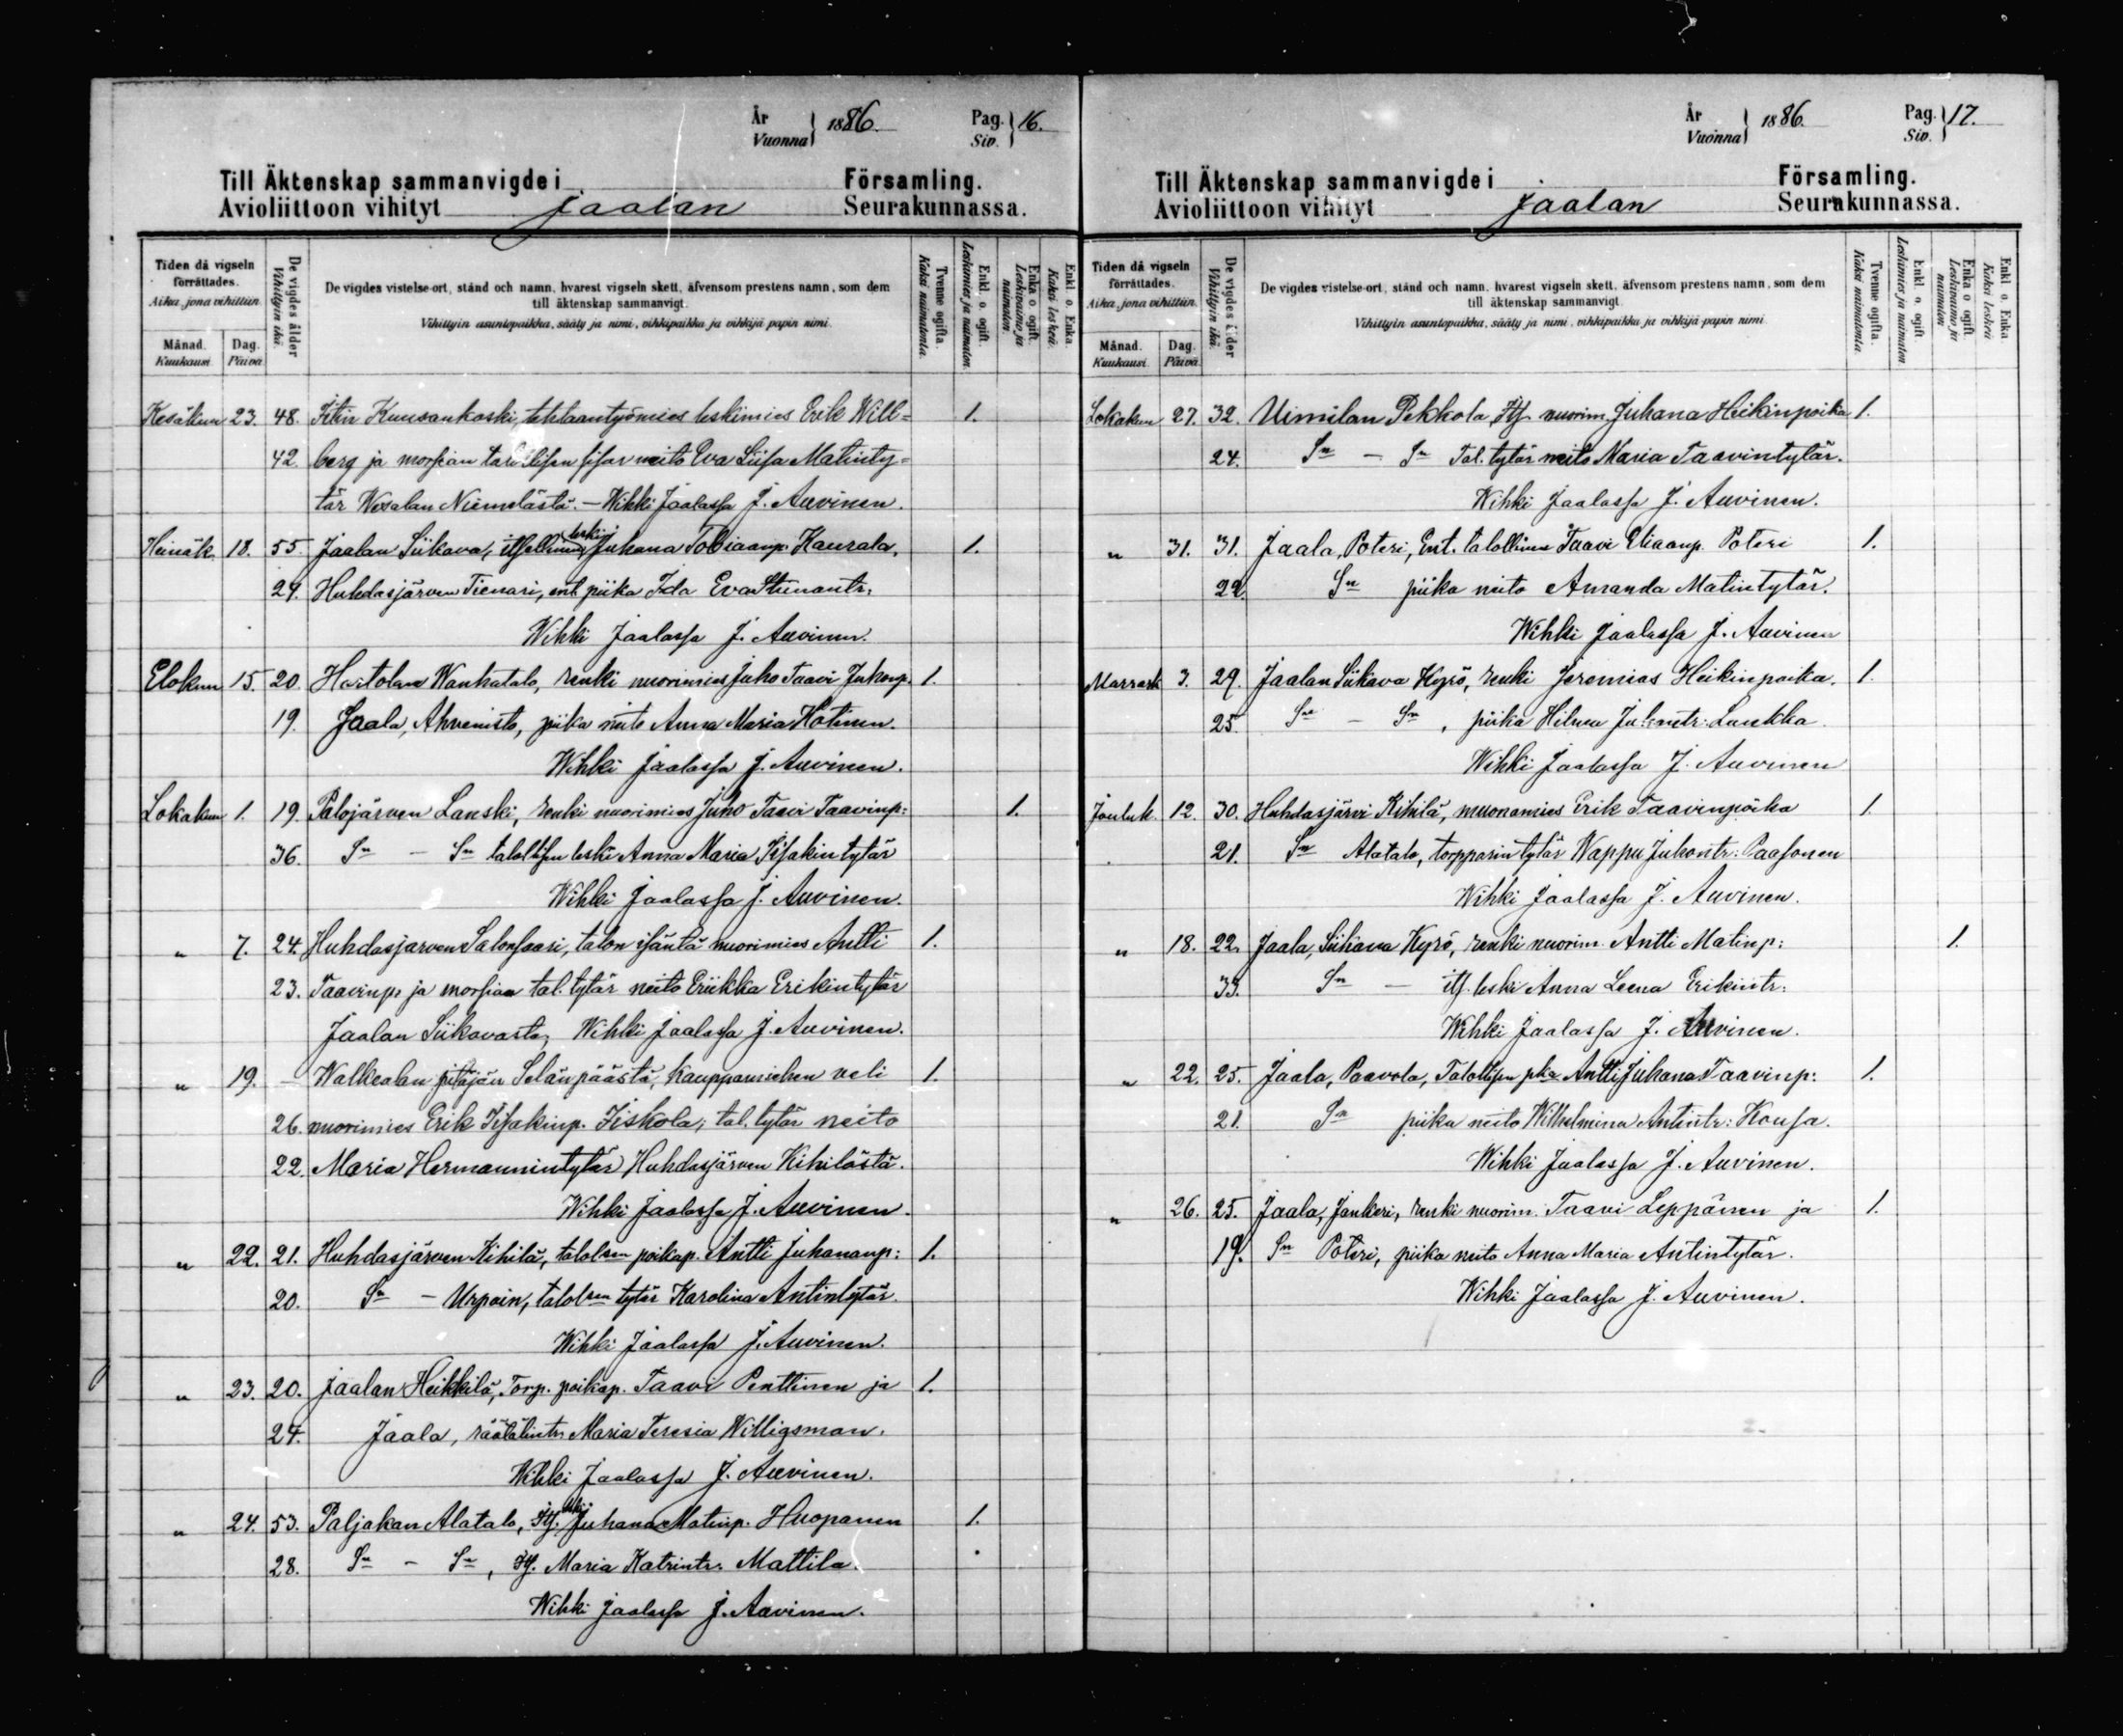 År
Vuonna } 1886.
Pag.
Siv. } 16.
Till Äktenskap sammanvigde i Församling.
Avioliittoon vihityt Jaalan Seurakunnassa.
Tiden då vigseln förrättades.
Aika, jona vihittiin.
Månad.
Kuukausi.
Dag.
Päivä.
De vigdes ålder
Vihittyin ikä.
De vigdes vistelse-ort, stånd och namn, hvarest vigseln skett, äfvensom prestens namn, som dem
till äktenskap sammanvigt.
Vihittyin asuntopaikka, sääty ja nimi, vihkipaikka ja vihkijä papin nimi.
Tvenne ogifta.
Kaksi naimatonta.
Enkl. o. ogift.
Leskimies ja naimaton.
Enka o ogift.
Leskivaimo ja naimaton.
Enkl. o. Enka.
Kaksi leskeä.
Kesäkuu 23. 48. Iitin Kuusankoski tehtaantyömies leskimies Erik Will= 1.
42. berg ja morsian talollisen sisar neito Eva Liisa Matinty=
tär Wesalan Niemelästä. — Wihki Jaalassa J. Auvinen.
Heinäk. 18. 55. Jaalan Siikava, itsellinen leski Juhana Tobiaanp. Kaurala. 1.
29. Huhdasjärven Tienari, ent. piika Ida Eva
Wihki Jaalassa J. Auvinen.
Elokuu 15. 20. Hartolan Wanhatalo, renki nuorimies Juho Taavi Juhonp. 1.
19. Jaala, Ahvenisto, piika neito Anna Maria Hotinen.
Wihki Jaalassa J. Auvinen.
Lokakuu 1. 19. Palojärven Lanski, renki nuorimies Juho Taavi Taavinp: 1.
36. Sn — Sn talollisen leski Anna Maria Iisakintytär
Wihki Jaalassa J. Auvinen.
„ 7. 24. Huhdasjärven Salonsaari, talon isäntä nuorimies Antti 1.
23. Taavinp. ja morsian tal. tytär neito Eriikka Erikintytär
Jaalan Siikavasta, Wihki Jaalassa J. Auvinen.
„ 19. — Walkealan pitäjän Selänpäästä, kauppamiehen veli 1.
26. nuorimies Erik Iisakinp. Iiskola; tal. tytär neito
22. Maria Hermannintytär Huhdasjärven Kihilästä.
Wihki Jaalassa J. Auvinen.
„ 22. 21. Huhdasjärven Kihilä, talolsen poikap. Antti Juhananp: 1.
20. Sn — Urpoin, talolsen tytär Karolina Antintytär.
Wihki Jaalassa J. Auvinen.
„ 23. 20. Jaalan Heikkilä, Torp. poikap. Taavi Penttinen ja 1.
24. Jaala, räätälintr. Maria Teresia Willigsman.
Wihki Jaalassa J. Auvinen.
„ 24. 53. Paljakan Alatalo, Its. leski Juhana Matinp. Huopanen 1.
28. Sn — Sn, Its. Maria Katrintr. Mattila.
Wihki Jaalassa J. Auvinen.
År
Vuonna } 1886.
Pag.
Siv. } 17.
Till Äktenskap sammanvigde i Församling.
Avioliittoon vihityt Jaalan Seurakunnassa.
Tiden då vigseln förrättades.
Aika, jona vihittiin.
Månad.
Kuukausi.
Dag.
Päivä.
De vigdes ålder
Vihittyin ikä.
De vigdes vistelse-ort, stånd och namn, hvarest vigseln skett, äfvensom prestens namn, som dem
till äktenskap sammanvigt.
Vihittyin asuntopaikka, sääty ja nimi, vihkipaikka ja vihkijä papin nimi.
Tvenne ogifta.
Kaksi naimatonta.
Enkl. o. ogift.
Leskimies ja naimaton
Enka o ogift.
Leskivaimo ja naimaton
Enkl o. Enka
Kaksi leskeä
Lokakuu 27. 32. Uimilan Pekkola, Its. nuorim. Juhana Heikinpoika 1.
24. Sn — Sn Tal. tytär neito Maria Taavintytär.
Wihki Jaalassa J. Auvinen.
„ 31. 31. Jaala, Poteri, Ent. talollinen Taavi Eliaanp. Poteri 1.
22. Sn piika neito Amanda Matintytär.
Wihki Jaalassa J. Auvinen
Marrask 3. 29. Jaalan Siikava Kyrö, renki Jeremias Heikinpoika. 1.
25. Sn — Sn, piika Hilma Juhontr: Laukka.
Wihki Jaalassa J. Auvinen
Jouluk. 12. 30. Huhdasjärvi Kihilä, muonamies Erik Taavinpoika 1.
21. Sn Alatalo, torpparin tytär Wappu Juhontr: Paasonen
Wihki Jaalassa J. Auvinen.
„ 18. 22. Jaala, Siikava Kyrö, renki nuorim. Antti Matinp: 1.
33. Sn — its. leski Anna Leena Erikintr:
Wihki Jaalassa J. Auvinen.
„ 22. 25. Jaala, Paavola, Talollisen pka Antti Juhana Taavinp: 1.
21. Sn piika neito Wilhelmina Antintr: Kousa.
Wihki Jaalassa J. Auvinen.
„ 26. 25. Jaala, Junkeri, renki nuorim. Taavi Leppänen ja 1.
19. Sn Poteri, piika neito Anna Maria Antintytär.
Wihki Jaalassa J. Auvinen.